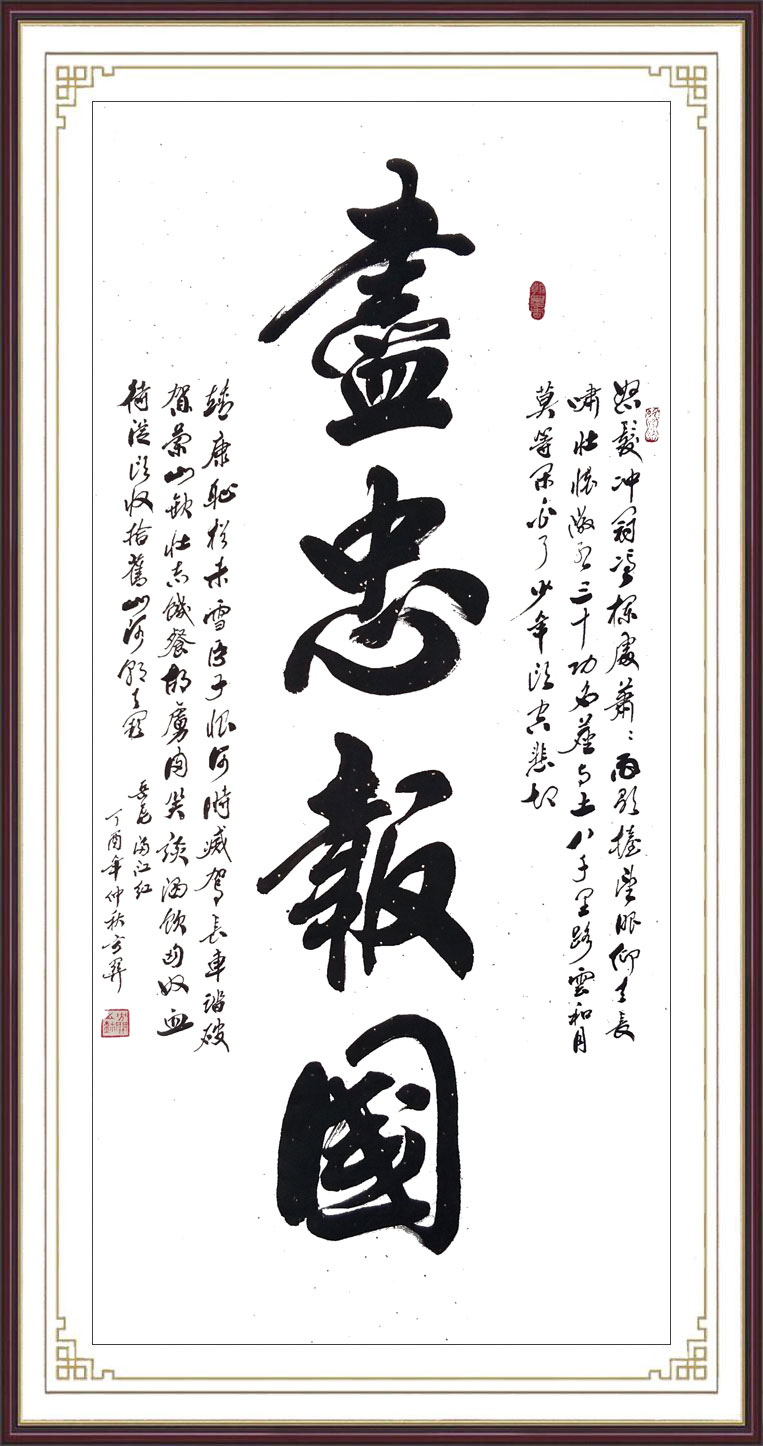 怒髮冲冠憑欄處蕭〻雨歇擡望眼仰天長
嘯壯懷激烈三十功名塵与土八千里路雲和月
莫等閑白了少年頭空悲切
盡忠報國
靖康恥猶未雪臣子恨何時滅駕長車踏破
賀蘭山缺壯志饑餐胡虜肉笑談渴飲匈奴血
待從頭收拾舊山河朝天闕
岳飛滿江紅
丁酉年仲秋